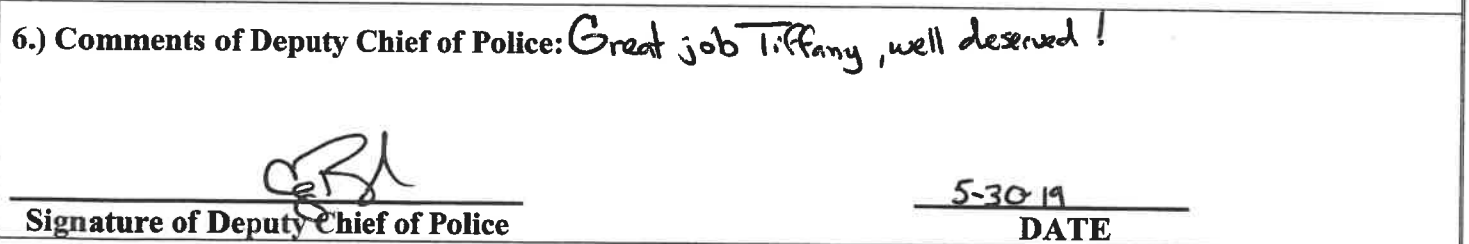 6.) Comments of Deputy Chief of Police: Great job Tiffany, well deserved!
5-30-19
Signature of Deputy Chief of Police DATE